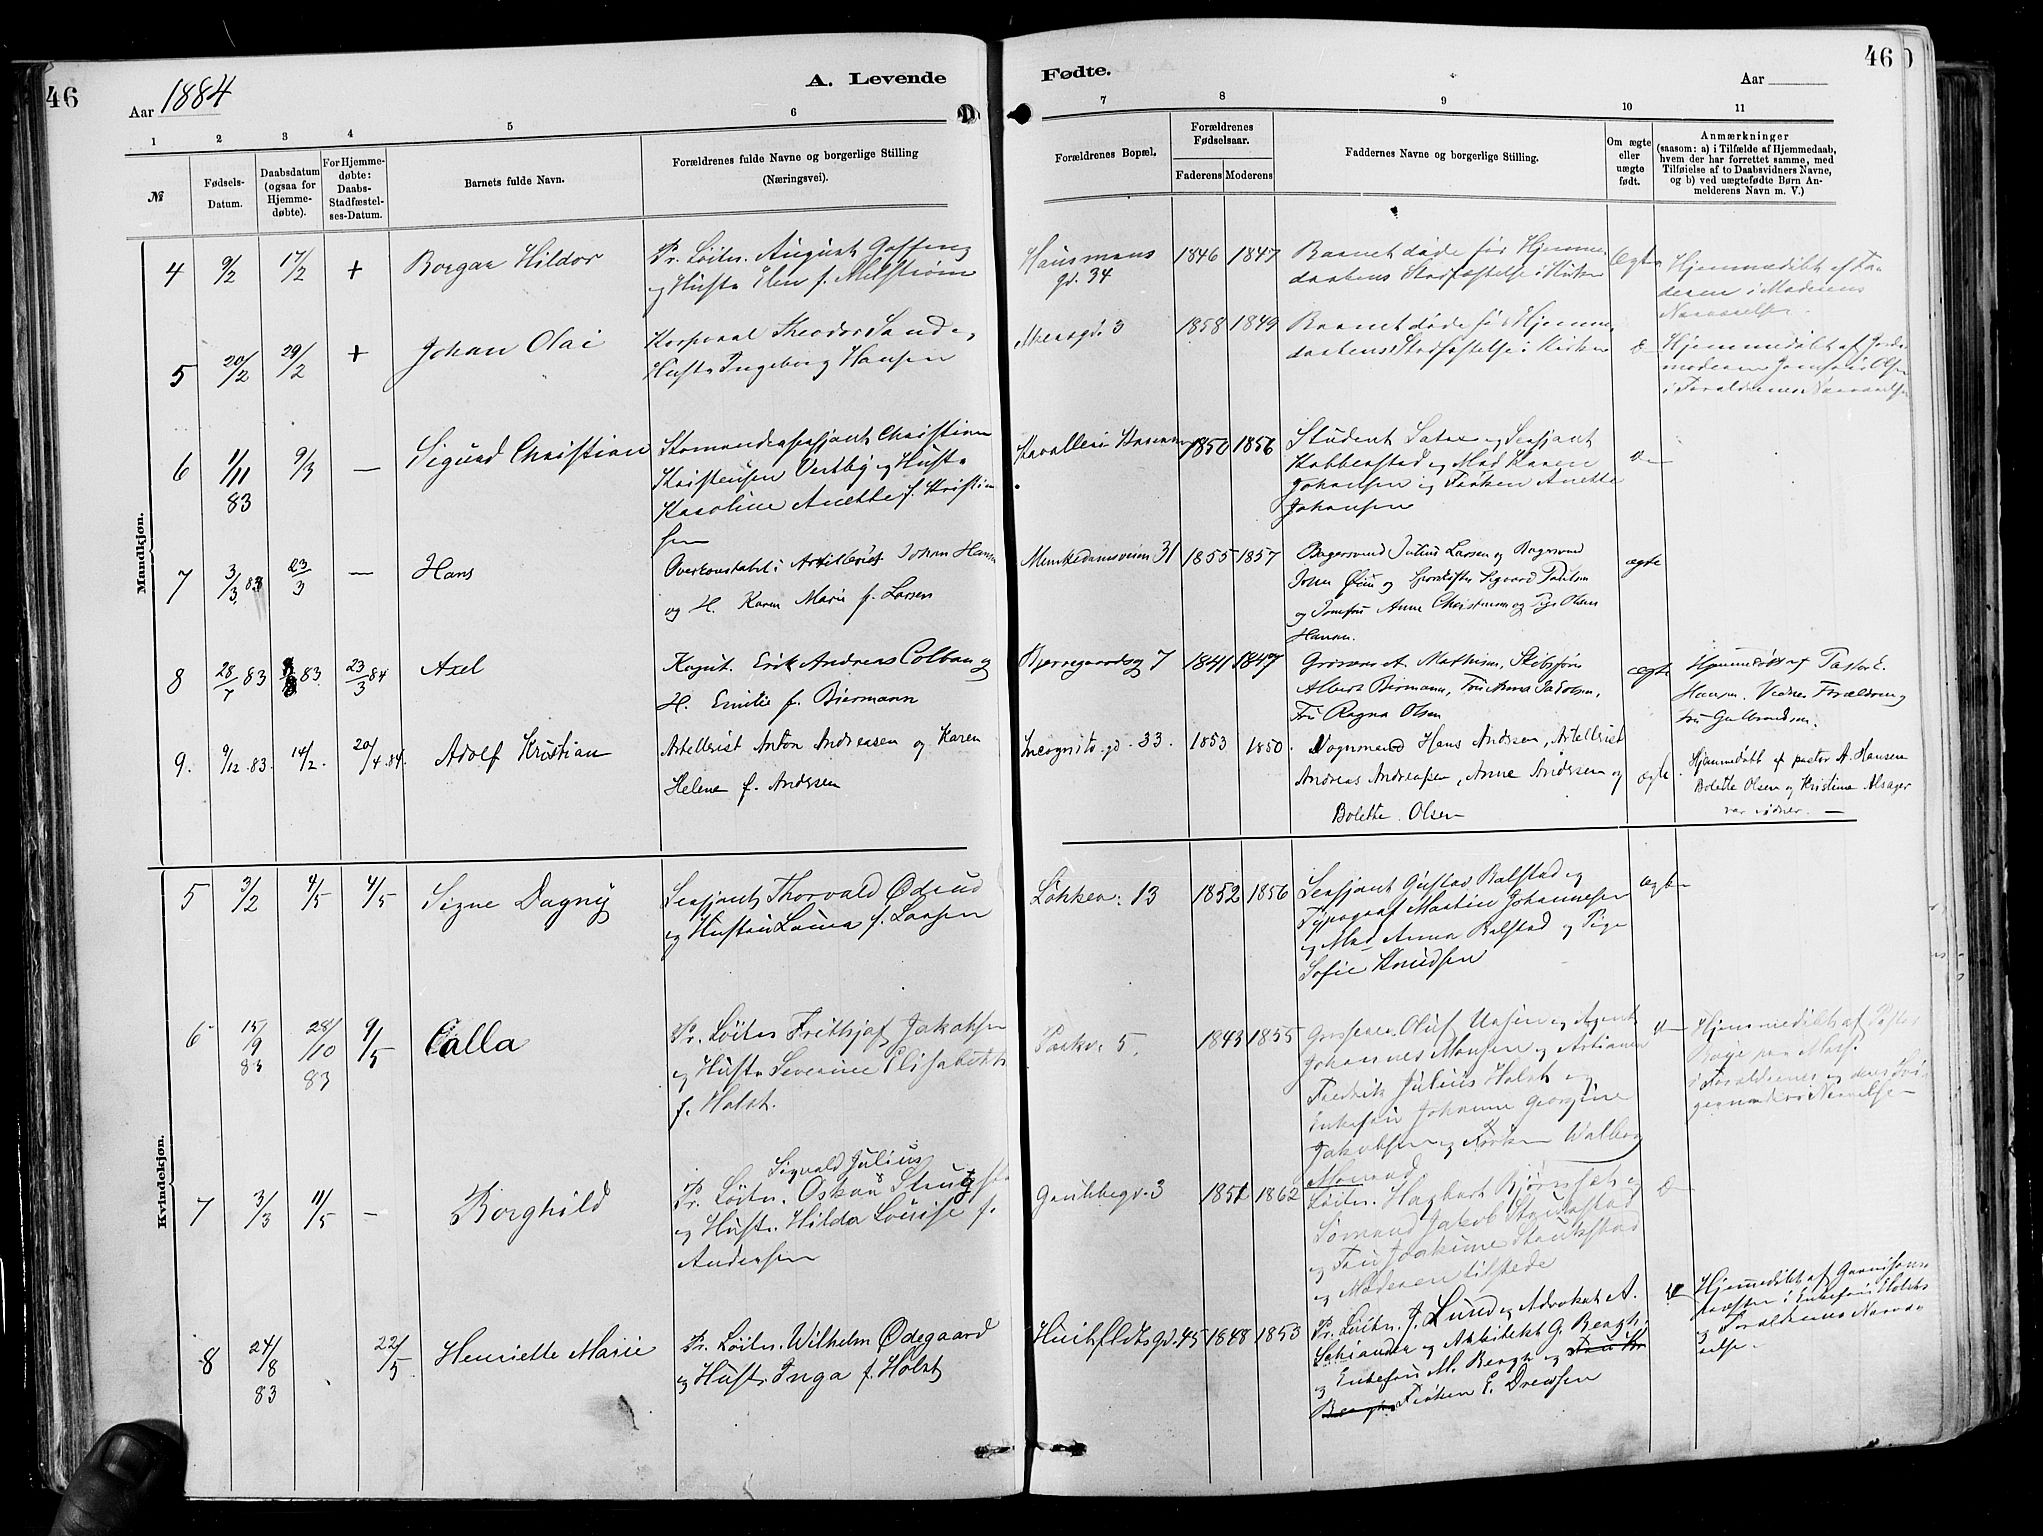 46
Aar 1884
A. Levende
Fødte.
Aar
46
1
2
3
4
5
6
7
8
9
10
11
№
Fødsels-
Datum.
Daabsdatum
(ogsaa for
Hjemme-
døbte).
For Hjemme-
døbte:
Daabs-
Stadfæstel-
ses-Datum.
Barnets fulde Navn.
Forældrenes fulde Navne og borgerlige Stilling
(Næringsvei).
Forældrenes Bopæl.
Forældrenes
Fødselsaar.
Faderens
Moderens
Faddernes Navne og borgerlige Stilling.
Om ægte
eller
uægte
født.
Anmærkninger
(saasom: a) i Tilfælde af Hjemmedaab,
hvem der har forrettet samme, med
Tilføielse af to Daabsvidners Navne,
og b) ved uægtefødte Børn An-
melderens Navn m. V.)
Mandkjøn.
4 9/2 17/2 + Borgar Hildor
Pr. Løitn. August
og Hustr. Elen f.
Hausmans
gd. 34
1846 1847
Barnet døde før Hjemme
daabens Stadfæstelse i Kirken
ægte
Hjemmedøbt af Fa-
deren i Moderens
Nærværelse.
5 20/2 29/2 + Johan Olai
Korporal Theodor Sand og
Hustr. Ingeborg Hansen
Akersgd. 3
1858 1849
Barnet døde før Hjemme
daabens Stadfæstelse i Kirken
Hjemmedøbt af Jorde
moderen Jomfru Olsen
i Forældrenes Nærværelse
6 11/11 83 9/3 — Sigurd Christian
Kommandersersjant Christian
Kristensen Vestby og Hustr.
Karoline Anette f. Kristian
sen
Kavalleri Kasernen
1850 1856
Student Sater og Sersjant
Kabberstad og Mad. Karen
Johansen og Frøken Anette
Johansen
7 3/3 83 23/3 — Hans
Overkonstabel i Artilleriet Johan Hansen
og H. Karen Marie f. Larsen
Munkedamsveien 31
1855 1857
Bagersvend Julius Larsen og Bagersvend
og Jomfru Anne Christensen og Pige Olsen
Hansen.
ægte
8 28/7 83 83 23/3 84 Axel
Kapt. Erik Andreas Colban og
H. Emilie f. Biermann
Bjerregaardsg 7
1841 1847
Grosserer A. Mathiesen,
Albert Biermann,
Fru Ragna Olsen
ægte
Hjemmedøbt af Pastor E.
Hansen. Vidner Forældrene og
Fru Gulbrandsen.
9. 9/12 83. 14/2. 20/4 84. Adolf Kristian
Artellerist Anton Andreasen og Karen
Helene f. Andersen
Incognito gd. 33.
1853 1850.
Vognmand Hans Andersen, Artellerist
Andreas Andreassen, Anne Andersen og
Bolette Olsen
ægte.
Hjemmedøbt af pastor A. Hansen
Bolette Olsen og Kristine Alsager
var vidner. —
Kvindekjøn.
5 3/2 4/5 4/5 Signe Dagny
Sersjant Thorvald Ødsud
og Hustru Laura f. Larsen
Løkkev. 13
1852 1856
Sersjant Gustav Balstad og
Typograf Martin Johannesen
og Mad. Anna Balstad og Pige
Sofie Knudsen
ægte
6 15/9 83 28/10 83 9/5 Calla
Pr. Løitn. Frithjof Jakobsen
og Hustr. Severine Elisabeth
f. Holst.
Parkv. 5.
1843 1855
Grosserer Oluf og Agent
Johannes Monsen og
Fredrik Julius Holst og
Enkefru Johanne Georgine
Jakobsen og Frøken Walborg
Hjemmedøbt af Pastor
i Forældrenes og deres Svi-
7 3/3 11/5 — Borghild
Sigvald Julius
Pr. Løitn. Oskar
og Hustr. Hilda Louise f.
Andersen
Gaustbegv. 3
1851 1862
Løitn. Hagbart og
Sømand Jakob Staukstad
og Fru Joakime Staukstad
og Moderen tilstede
8 24/8 83 22/5 Henriette Marie
Pr. Løitn. Wilhelm Ødegaard
og Hustr. Inga f. Holst
Huitfeldtsgd. 45
1848 1853
Pr. Løitn. J. Lund og Advokat A.
og Arkitekt G. Bergh.
og Enkefru M. Bergh og
Frøken E. Drewsen
Hjemmedøbt af Garnisons
præsten i Enkefru Holsts
og Forældrenes Nærvæ-
relse.